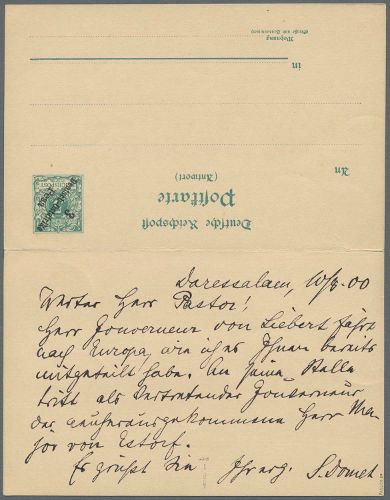 Wohnung
(Straße und Hausnummer)
in
An
(Antwort)
Postkarte
Deutsche Reichspost
REICHSPOST
3
Daressalam, 10/9. 00
Werter Herr Pastor!
Herr Gouverneur von Liebert fährt
nach Europa, wie ich es Ihnen bereits
mitgeteilt habe. An seine Stelle
tritt als Vertretender Gouverneur
der neuherausgekommene Herr Ma-
jor von Estorf.
Es grüßt Sie Ihr erg. S. Domet.